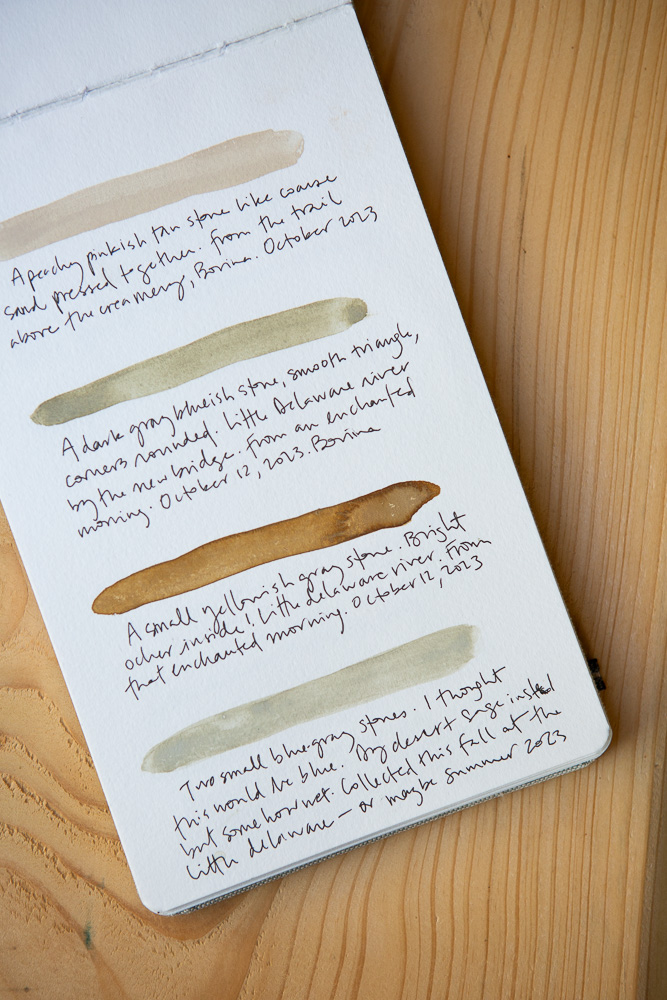 A peachy pinkish tan stone like coarse
sand pressed together. From the trail
above the creamery, Bovina. October 2023
A dark gray blueish stone, smooth triangle,
corners rounded. Little Delaware river
by the new bridge. From an enchanted
morning. October 12, 2023. Bovina
A small yellowish gray stone. Bright
ocher inside! Little delaware river. From
that enchanted morning. October 12, 2023
Two small blue gray stones. I thought
this would be blue. Dry desert sage instead
but somehow wet. Collected this fall at the
little delaware – or maybe summer 2023